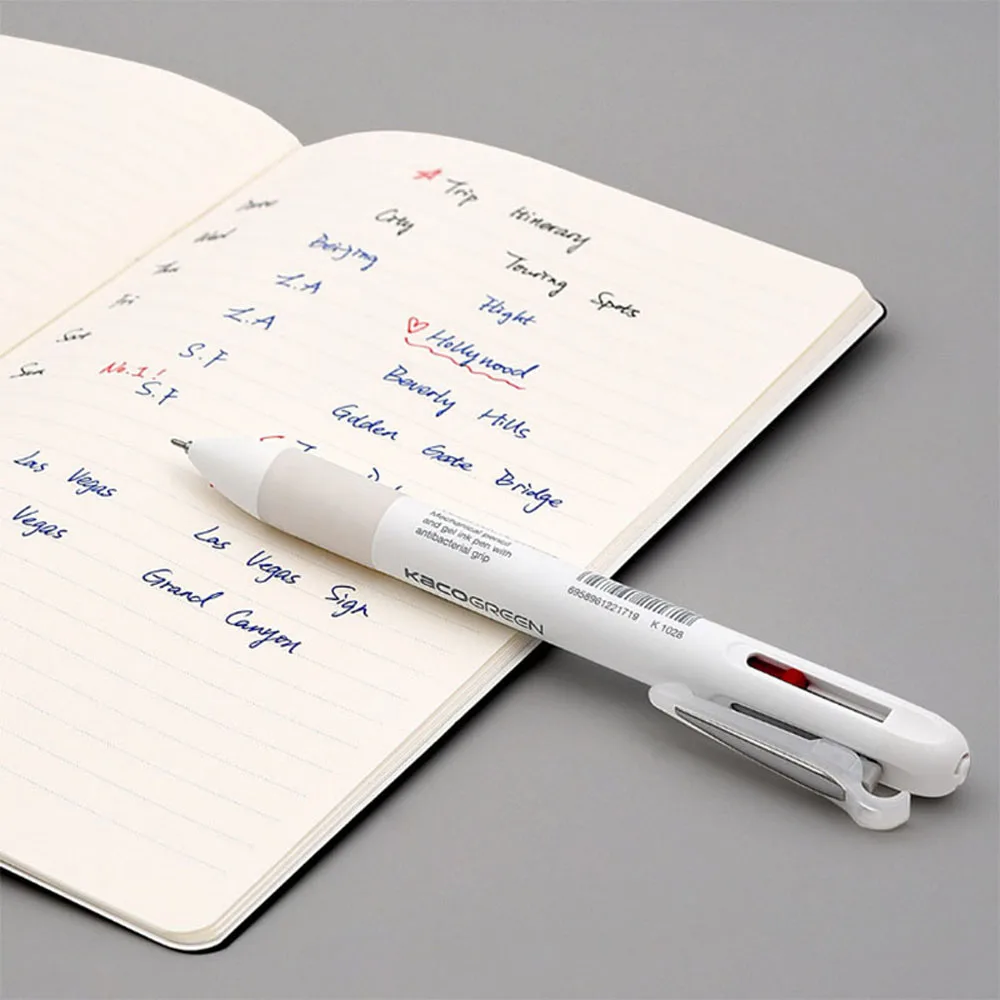 ☆ Trip Itinerary
City Touring Spots
Wed Beijing Flight
Thu L.A ♡ Hollywood
Fri L.A Beverly Hills
Sat S.F Golden Gate Bridge
Sun No.1! S.F
Las Vegas Las Vegas Sign
Vegas Grand Canyon
Mechanical pencil
and gel ink pen with
antibacterial grip
KACOGREEN
6958961221719 K1028